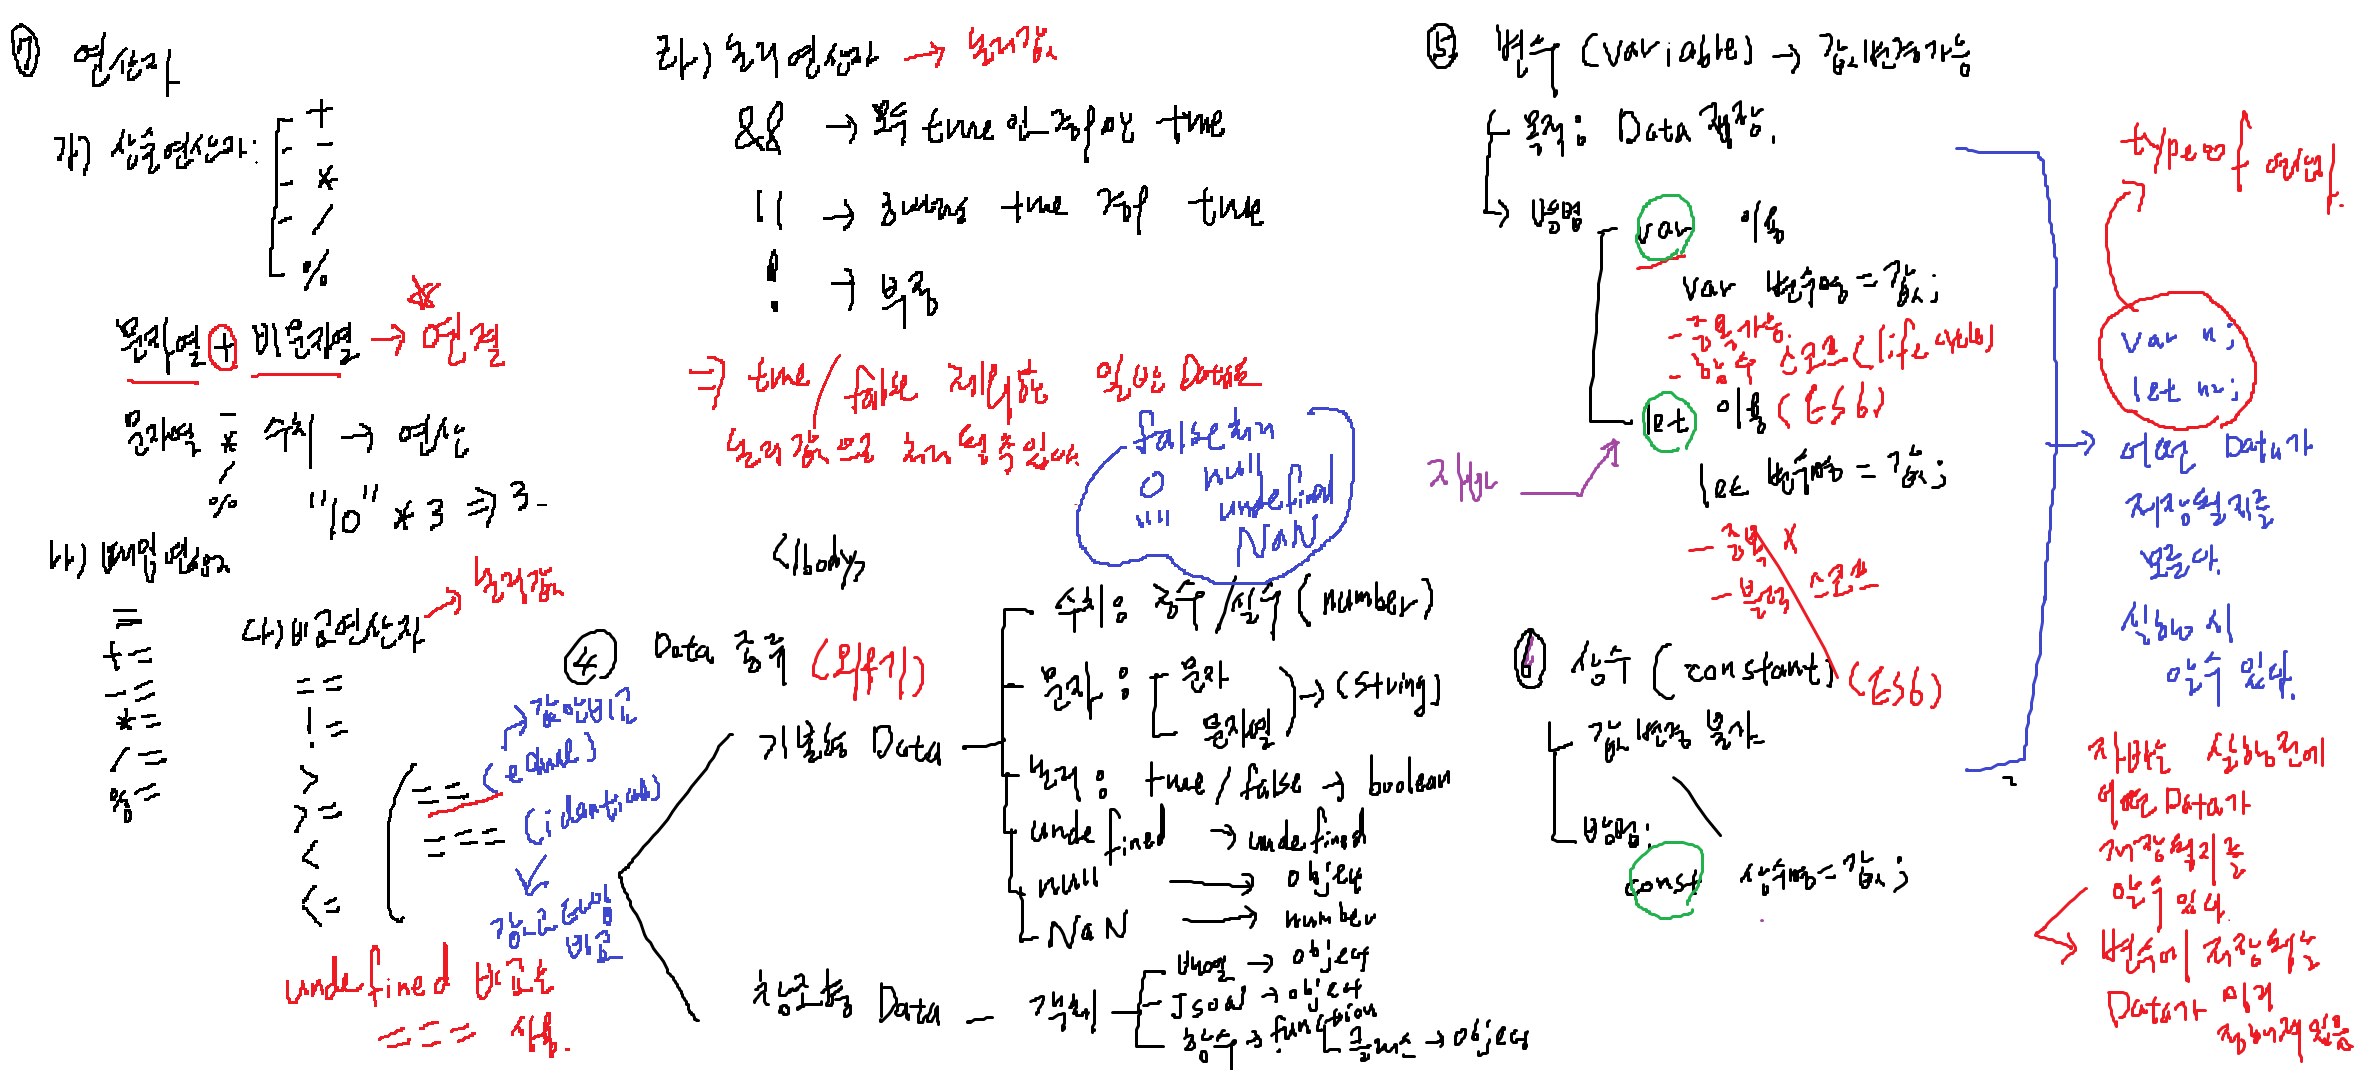 ⑦ 연산자
가) 산술연산자:
+
-
*
/
%
문자열 + 비문자열 → 연결
문자열 - 수치 → 연산
*
/
%
"10" * 3 => 3-
나) 대입연산자
=
+=
-=
*=
/=
%=
다) 비교연산자 → 논리값
==
!=
>
>=
<
<=
== (equal) → 값만비교
=== (identical)
값과 타입
비교
undefined 비교는
=== 사용.
라) 논리연산자 → 논리값
&& → 모두 true인 경우만 true
|| → 하나라도 true 경우 true
! → 부정
=> true/false 제외한 일반 Data도
논리값으로 처리될 수 있다.
false처리
0 null
"" undefined
NaN
</body>
④ Data 종류 (외우기)
기본형 Data
수치: 정수/실수 (number)
문자: 문자
문자열
→ (string)
논리: true/false → boolean
undefined → undefined
null → object
NaN → number
참조형 Data - 객체
배열 → object
JSON → object
함수 → function
클래스 → object
⑤ 변수 (variable) → 값변경가능
목적: Data 저장.
방법
var 이용
var 변수명 = 값;
- 중복가능.
- 함수 스코프 (life cycle)
let 이용 (ES6)
지향
let 변수명 = 값;
- 중복 x
- 블럭 스코프
⑥ 상수 (constant) (ES6)
값 변경 불가
방법:
const 상수명 = 값;
typeof 변수명.
var n;
let n2;
어떤 Data가
저장될지를
모른다.
실행시
알수 있다.
자바는 실행전에
어떤 Data가
저장될지를
알수 있다.
변수에 저장되는
Data가 미리
정해져있음